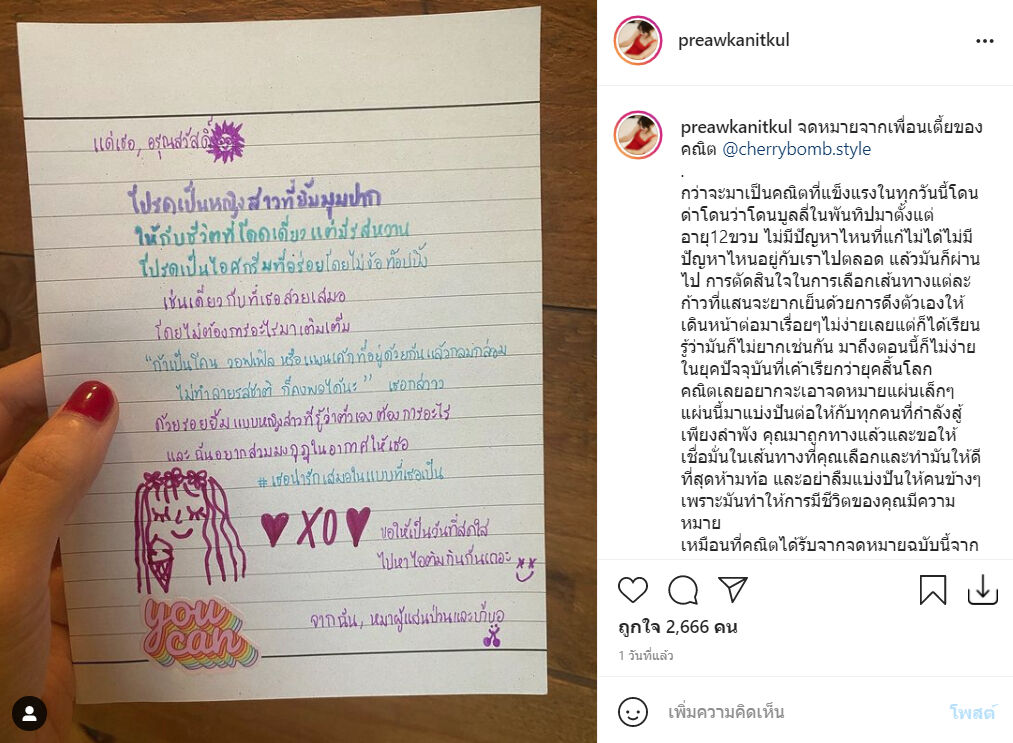 แด่เธอ, อรุณสวัสดิ์
โปรดเป็นหญิงสาวที่ยิ้มมุมปาก
ให้กับชีวิตที่โดดเดี่ยวแต่มีรสหวาน
โปรดเป็นไอศกรีมที่อร่อยโดยไม่ง้อท็อปปิ้ง
เช่นเดียวกับที่เธอสวยเสมอ
โดยไม่ต้องการอะไรมาเติมเต็ม
"ถ้าเป็นโคน วอฟเฟิล หรือแพนเค้กที่อยู่ด้วยกันแล้วกลมกล่อม
ไม่ทำลายรสชาติ ก็คงพอได้นะ" เธอกล่าว
ด้วยรอยยิ้มแบบหญิงสาวที่รู้ว่าตัวเองต้องการอะไร
และฉันอยากสวมมงกุฎในอากาศให้เธอ
#เธอน่ารักเสมอในแบบที่เธอเป็น
XO
ขอให้เป็นวันที่สดใส
ไปหาไอติมกินกันเถอะ
you can
จากฉัน, หมาผู้แสนป่วนและบ๊บอ
preawkanitkul
preawkanitkul จดหมายจากเพื่อนเตี้ยของ
คณิต @cherrybomb.style
.
กว่าจะมาเป็นคณิตที่แข็งแรงในทุกวันนี้โดน
ด่าโดนว่าโดนบูลลี่ในพันทิปมาตั้งแต่
อายุ12ขวบ ไม่มีปัญหาไหนที่แก้ไม่ได้ไม่มี
ปัญหาไหนอยู่กับเราไปตลอด แล้วมันก็ผ่าน
ไป การตัดสินใจในการเลือกเส้นทางแต่ละ
ก้าวที่แสนจะยากเย็นด้วยการดึงตัวเองให้
เดินหน้าต่อมาเรื่อยๆไม่ง่ายเลยแต่ก็ได้เรียน
รู้ว่ามันก็ไม่ยากเช่นกัน มาถึงตอนนี้ก็ไม่ง่าย
ในยุคปัจจุบันที่เค้าเรียกว่ายุคสิ้นโลก
คณิตเลยอยากจะเอาจดหมายแผ่นเล็กๆ
แผ่นนี้มาแบ่งปันต่อให้กับทุกคนที่กำลังสู้
เพียงลำพัง คุณมาถูกทางแล้วและขอให้
เชื่อมั่นในเส้นทางที่คุณเลือกและทำมันให้ดี
ที่สุดห้ามท้อ และอย่าลืมแบ่งปันให้คนข้างๆ
เพราะมันทำให้การมีชีวิตของคุณมีความ
หมาย
เหมือนที่คณิตได้รับจากจดหมายฉบับนี้จาก
ถูกใจ 2,666 คน
1 วันที่แล้ว
เพิ่มความคิดเห็น
โพสต์